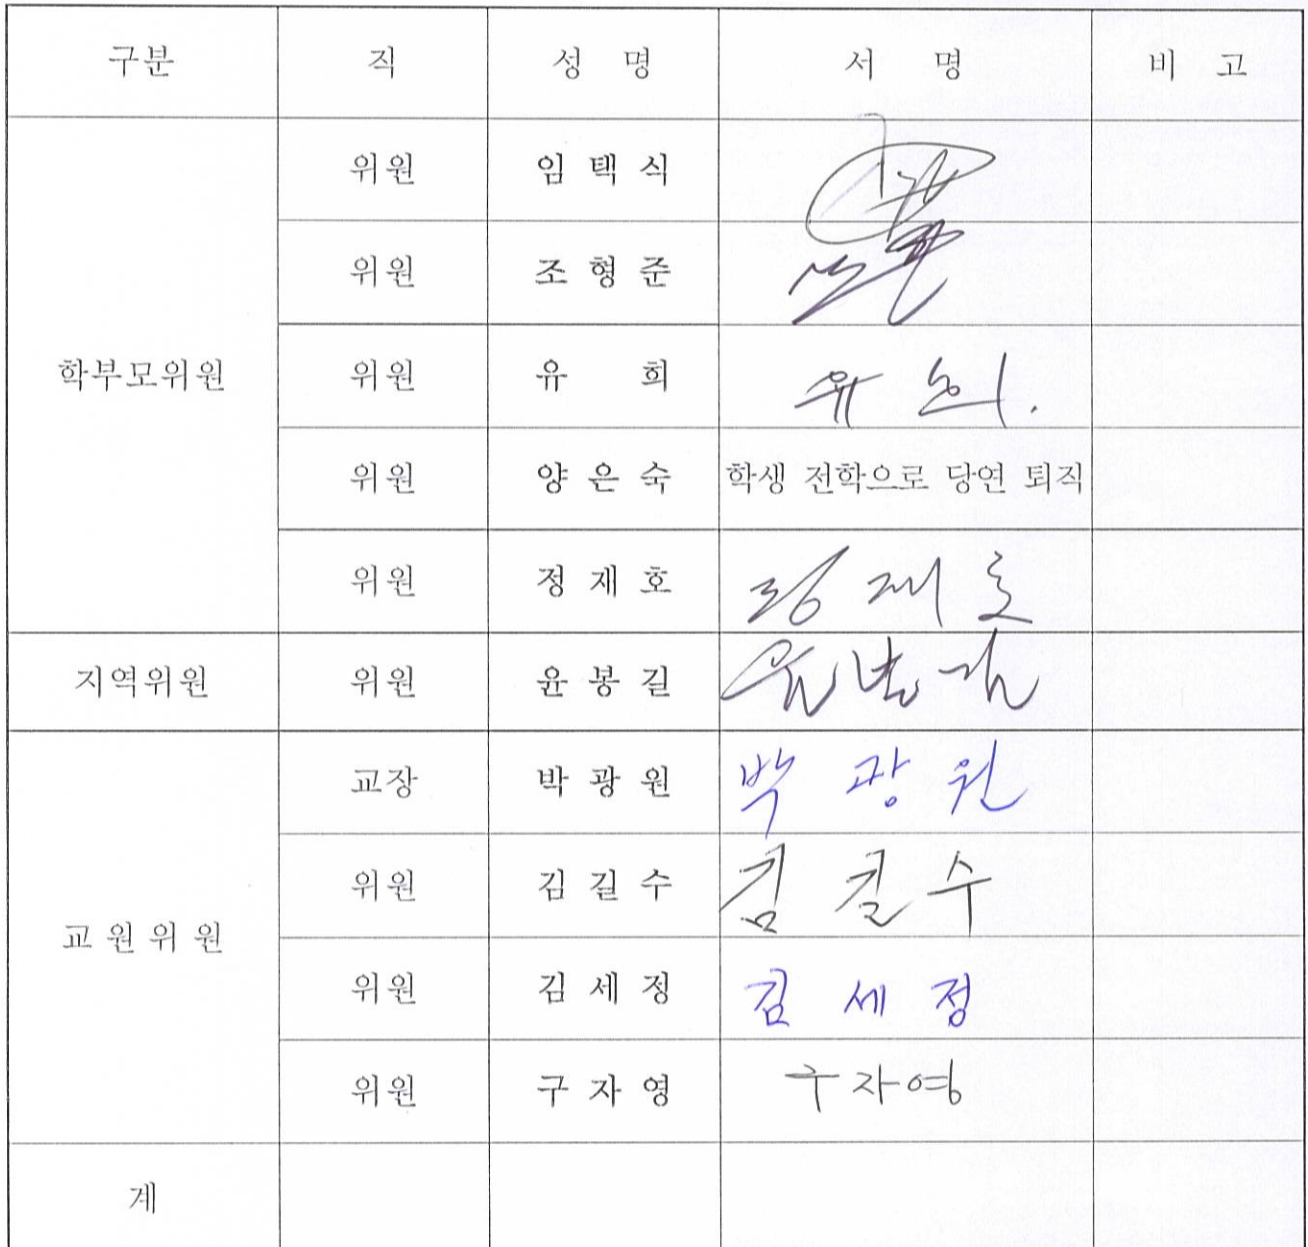 구분 직 성 명 서 명 비 고
위원 임 택 식
위원 조 형 준
학부모위원 위원 유 희 유 희.
위원 양 은 숙 학생 전학으로 당연 퇴직
위원 정 재 호 정 재 호
지역위원 위원 윤 봉 길 윤 봉 길
교장 박 광 원 박 광 원
위원 김 길 수 김 길 수
교 원 위 원
위원 김 세 정 김 세 정
위원 구 자 영 구 자 영
계